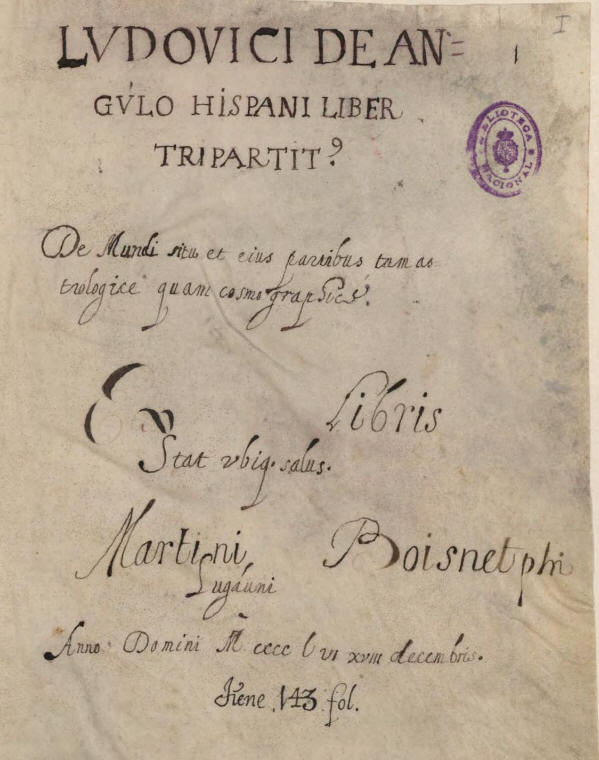 I
LVDOVICI DE AN=
GVLO HISPANI LIBER
TRIPARTITꝰ
BIBLIOTECA NACIONAL
De Mundi situ et eius partibus tam as
trologice quam cosmographicè.
Ex Libris
Stat vbiq. salus.
Martini Boisnet phi
Lugduni
Anno Domini M cccc lvi xviii decembris.
tiene 143 fol.